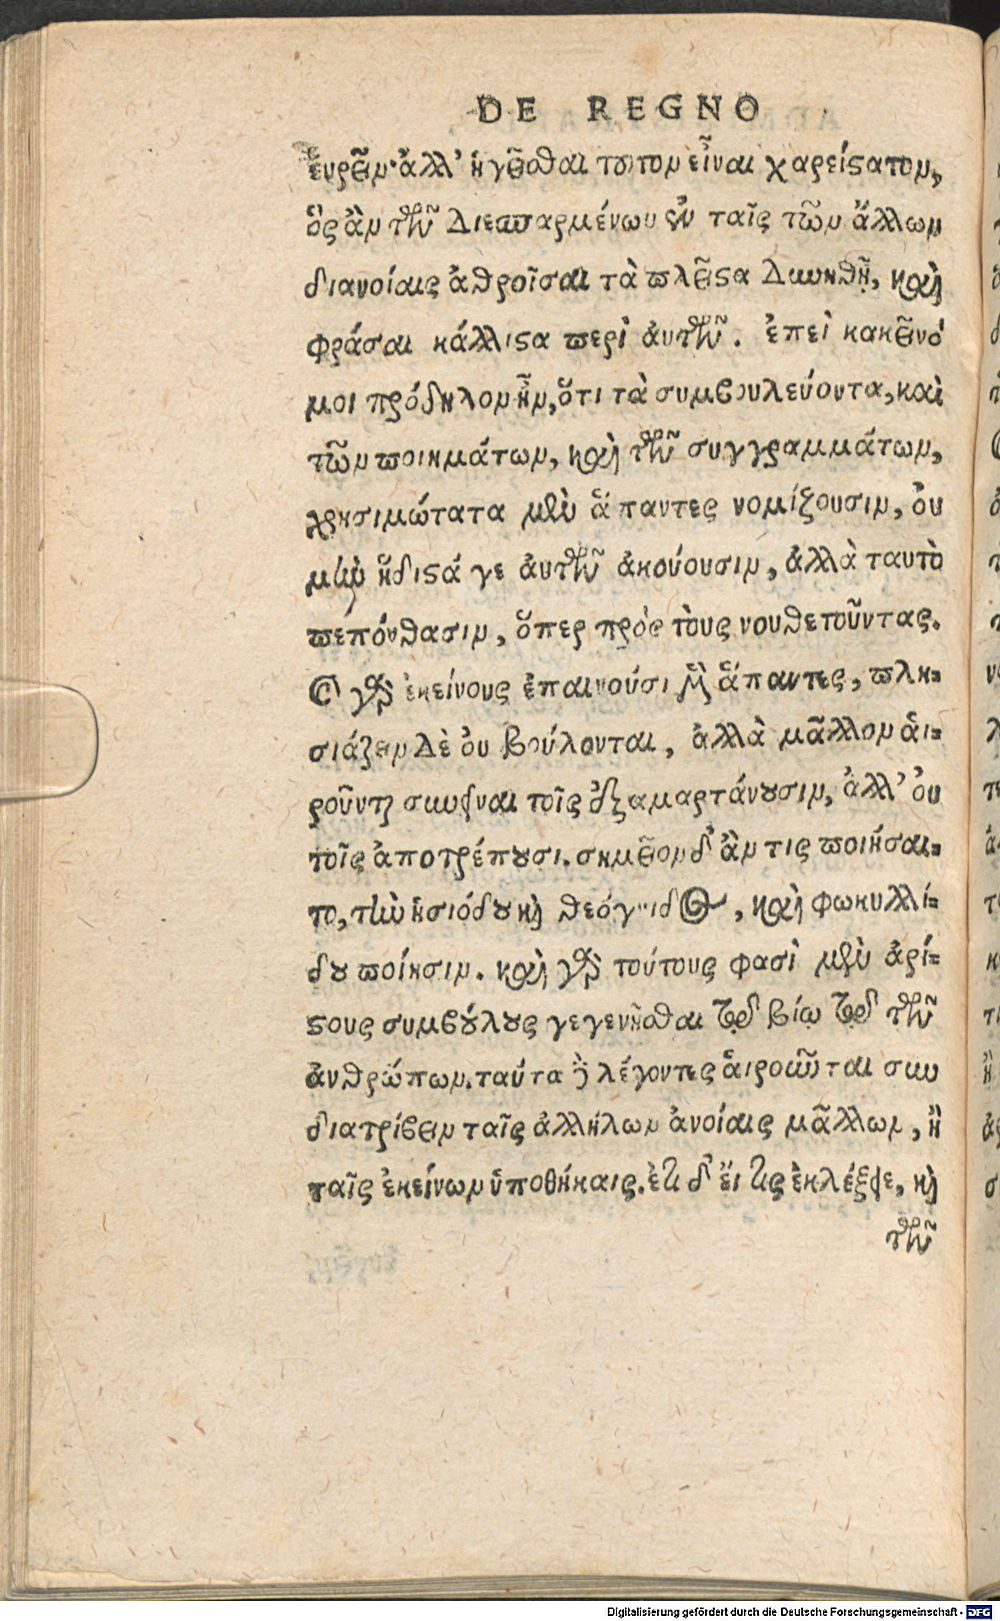 DE REGNO
ἑυρεῖν. ἀλλ' ἡγεῖσθαι τοῦτον εἶναι χαριέστατον,
ὃς ἂν τῶν διεσπαρμένων ἐν ταῖς τῶν ἄλλων
διανοίαις ἀθροῖσαι τὰ πλεῖστα δυνηθῇ, καὶ
φράσαι κάλλιστα περὶ ἀυτῶν. ἐπεὶ κακεῖνό
μοι πρόδηλον ἦν, ὅτι τὰ συμβουλεύοντα, καὶ
τῶν ποιημάτων, καὶ τῶν συγγραμμάτων,
χρησιμώτατα μὲν ἅπαντες νομίζουσιν, ὀυ
μὴν ἥδιστά γε ἀυτῶν ἀκούουσιν, ἀλλὰ ταυτὸ
πεπόνθασιν, ὅπερ πρὸς τὸυς νουθετοῦντας.
Ὁ γὰρ ἐκείνους ἐπαινούσι μὲν ἅπαντες, πλη-
σιάζειν δὲ ὀυ βούλονται, ἀλλὰ μᾶλλον ἁι-
ροῦνται συνεῖναι τοῖς ἐξαμαρτάνουσιν, ἀλλ' ὀυ
τοῖς ἀποτρέπουσι. σημεῖον δ' ἄν τις ποιήσαι-
το, τὴν ἡσιόδου καὶ θεόγνιδος, καὶ φωκυλλί-
δου ποίησιν. καὶ γὰρ τούτους φασὶ μὲν ἀρί-
στους συμβούλους γεγενῆσθαι τῷ βίῳ τῷ τῶν
ἀνθρώπων. ταύτα δὲ λέγοντες ἁιροῦνται συν
διατρίβειν ταῖς ἀλλήλων ἀνοίαις μᾶλλον, ἢ
ταῖς ἐκείνων ὑποθήκαις. ἔτι δ' ἔι τις ἐκλέξειε, καὶ
τῶν
Digitalisierung gefördert durch die Deutsche Forschungsgemeinschaft - DFG